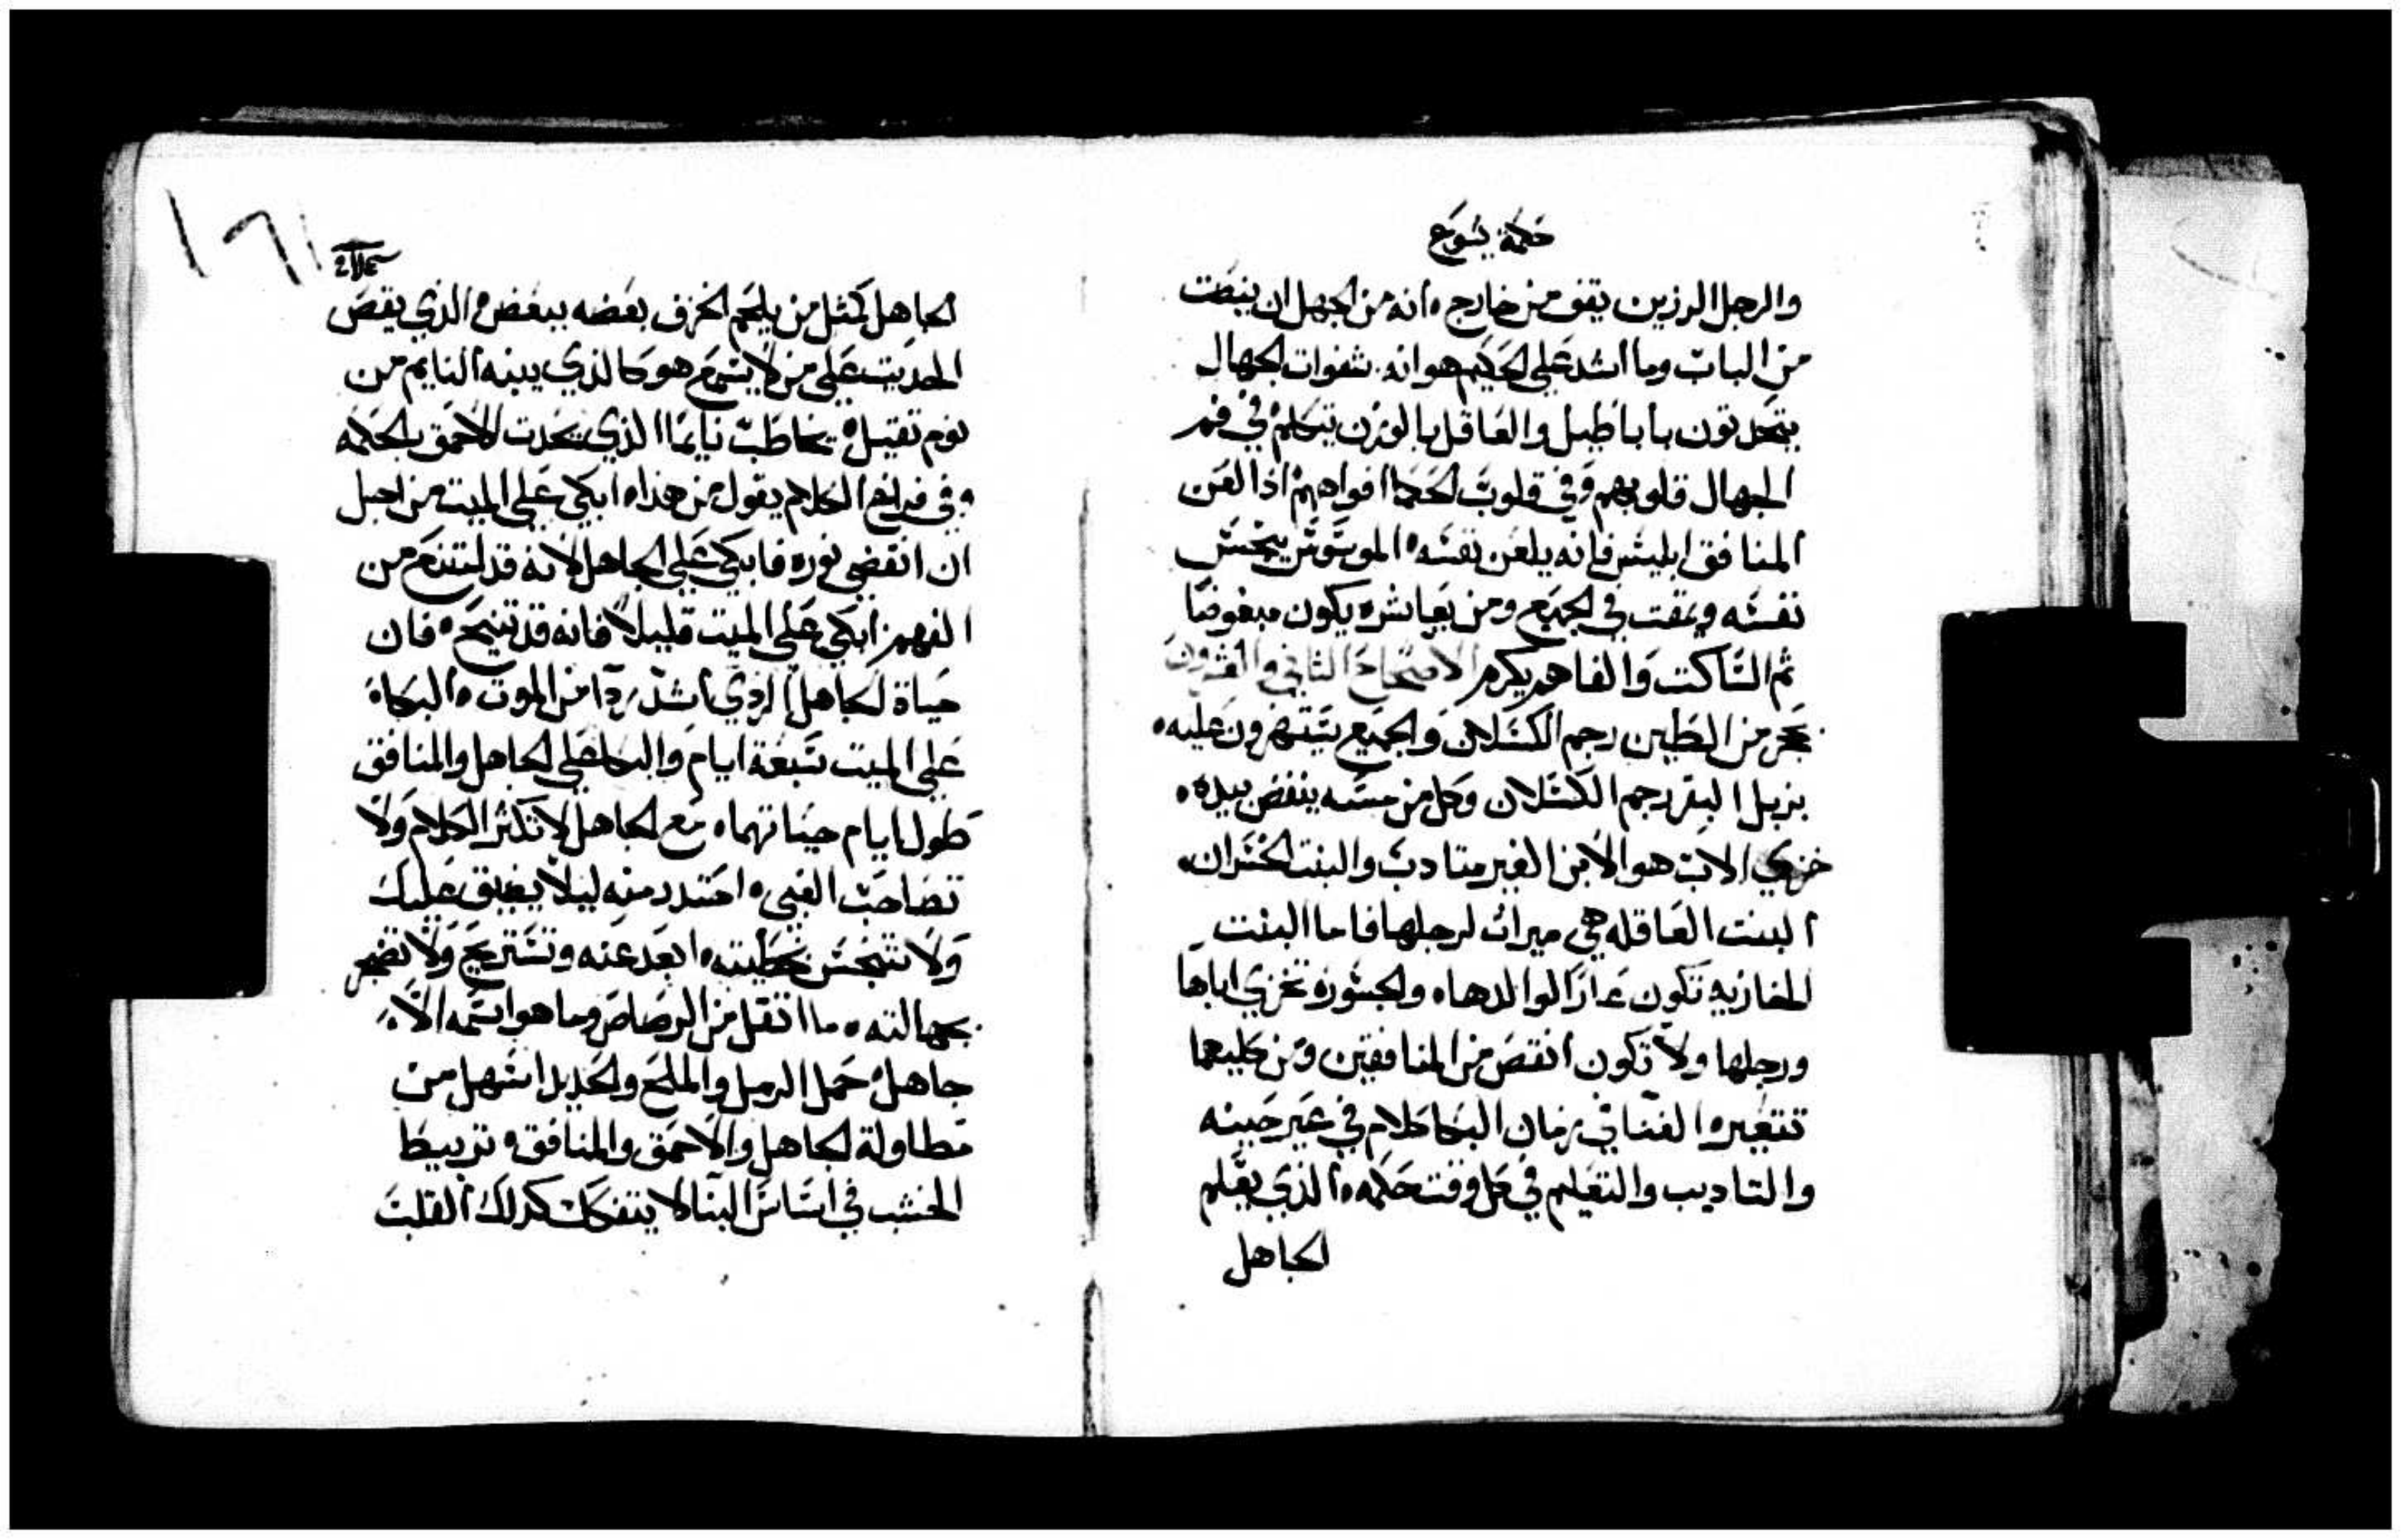 حكمة يشوع
والرجل الرزين يقف من خارج ه انه من الجهل ان ينصت
من الباب وما اشد على الحكيم هوانه. شفوات الجهال
يتحدتون بأباطيل والعاقل بالوزن يتكلم ه في فم
الجهال قلوبهم وفي قلوب الحكما افواههم ه اذا لعن
المنافق ابليس فانه يلعن نفسه ه الموسوس ينجس
نفسه ويمقت في الجميع ومن يعاشره يكون مبغوضا
ثم الساكت والفاهم يكرم الاصحاح الثاني والعشرون
بحجر من الطين رجم الكسلان والجميع يستهزون عليه ه
بزبل البقر رجم الكسلان وكل من مسه ينفض يده ه
خزي الاب هو الابن الغير متادب والبنت الخسران ه
البنت العاقله هي ميراث لرجلها فاما البنت
المخازيه تكون عارا لوالدها ه والجسوره تخزي اباها
ورجلها ولا تكون انقص من المنافقين ومن كليهما
تتعير ه الغنا في زمان البكا كلام في غير حينه
والتاديب والتعليم في كل وقت حكمه ه الذي يعلم
الجاهل
الجاهل كمثل من يلحم الخزف بعضه ببعض ه الذي يقص
الحديث على من لا يسمع هو كالذي ينبه النايم من
نوم تقيل ه يخاطب نايما الذي يتحدت للاحمق بالحكمه
وفي فراغ الكلام يقول من هذا ه ابكي على الميت من اجل
ان انقضي نوره فابكي على الجاهل لانه قد انتزع من
الفهم ابكي على الميت قليلا فانه قد تنيح ه فان
حياة الجاهل الردي اشد ردا من الموت ه البكاء
على الميت سبعة ايام والبكا على الجاهل والمنافق
طول ايام حياتهما ه مع الجاهل لا تكثر الكلام ولا
تصاحب الغبي ه احتدر منه ليلا يضيق عليك
ولا تتنجس بخطيته ه ابعد عنه وتستريح ولا تضجر
بجهالته ه ما اتقل من الرصاص وما هو اسمه الا
جاهل ه حمل الرمل والملح والحديد اسهل من
مطاولة الجاهل والاحمق والمنافق ه تربيط
الخشب في اساس البنا لا يتفكك كدلك القلب